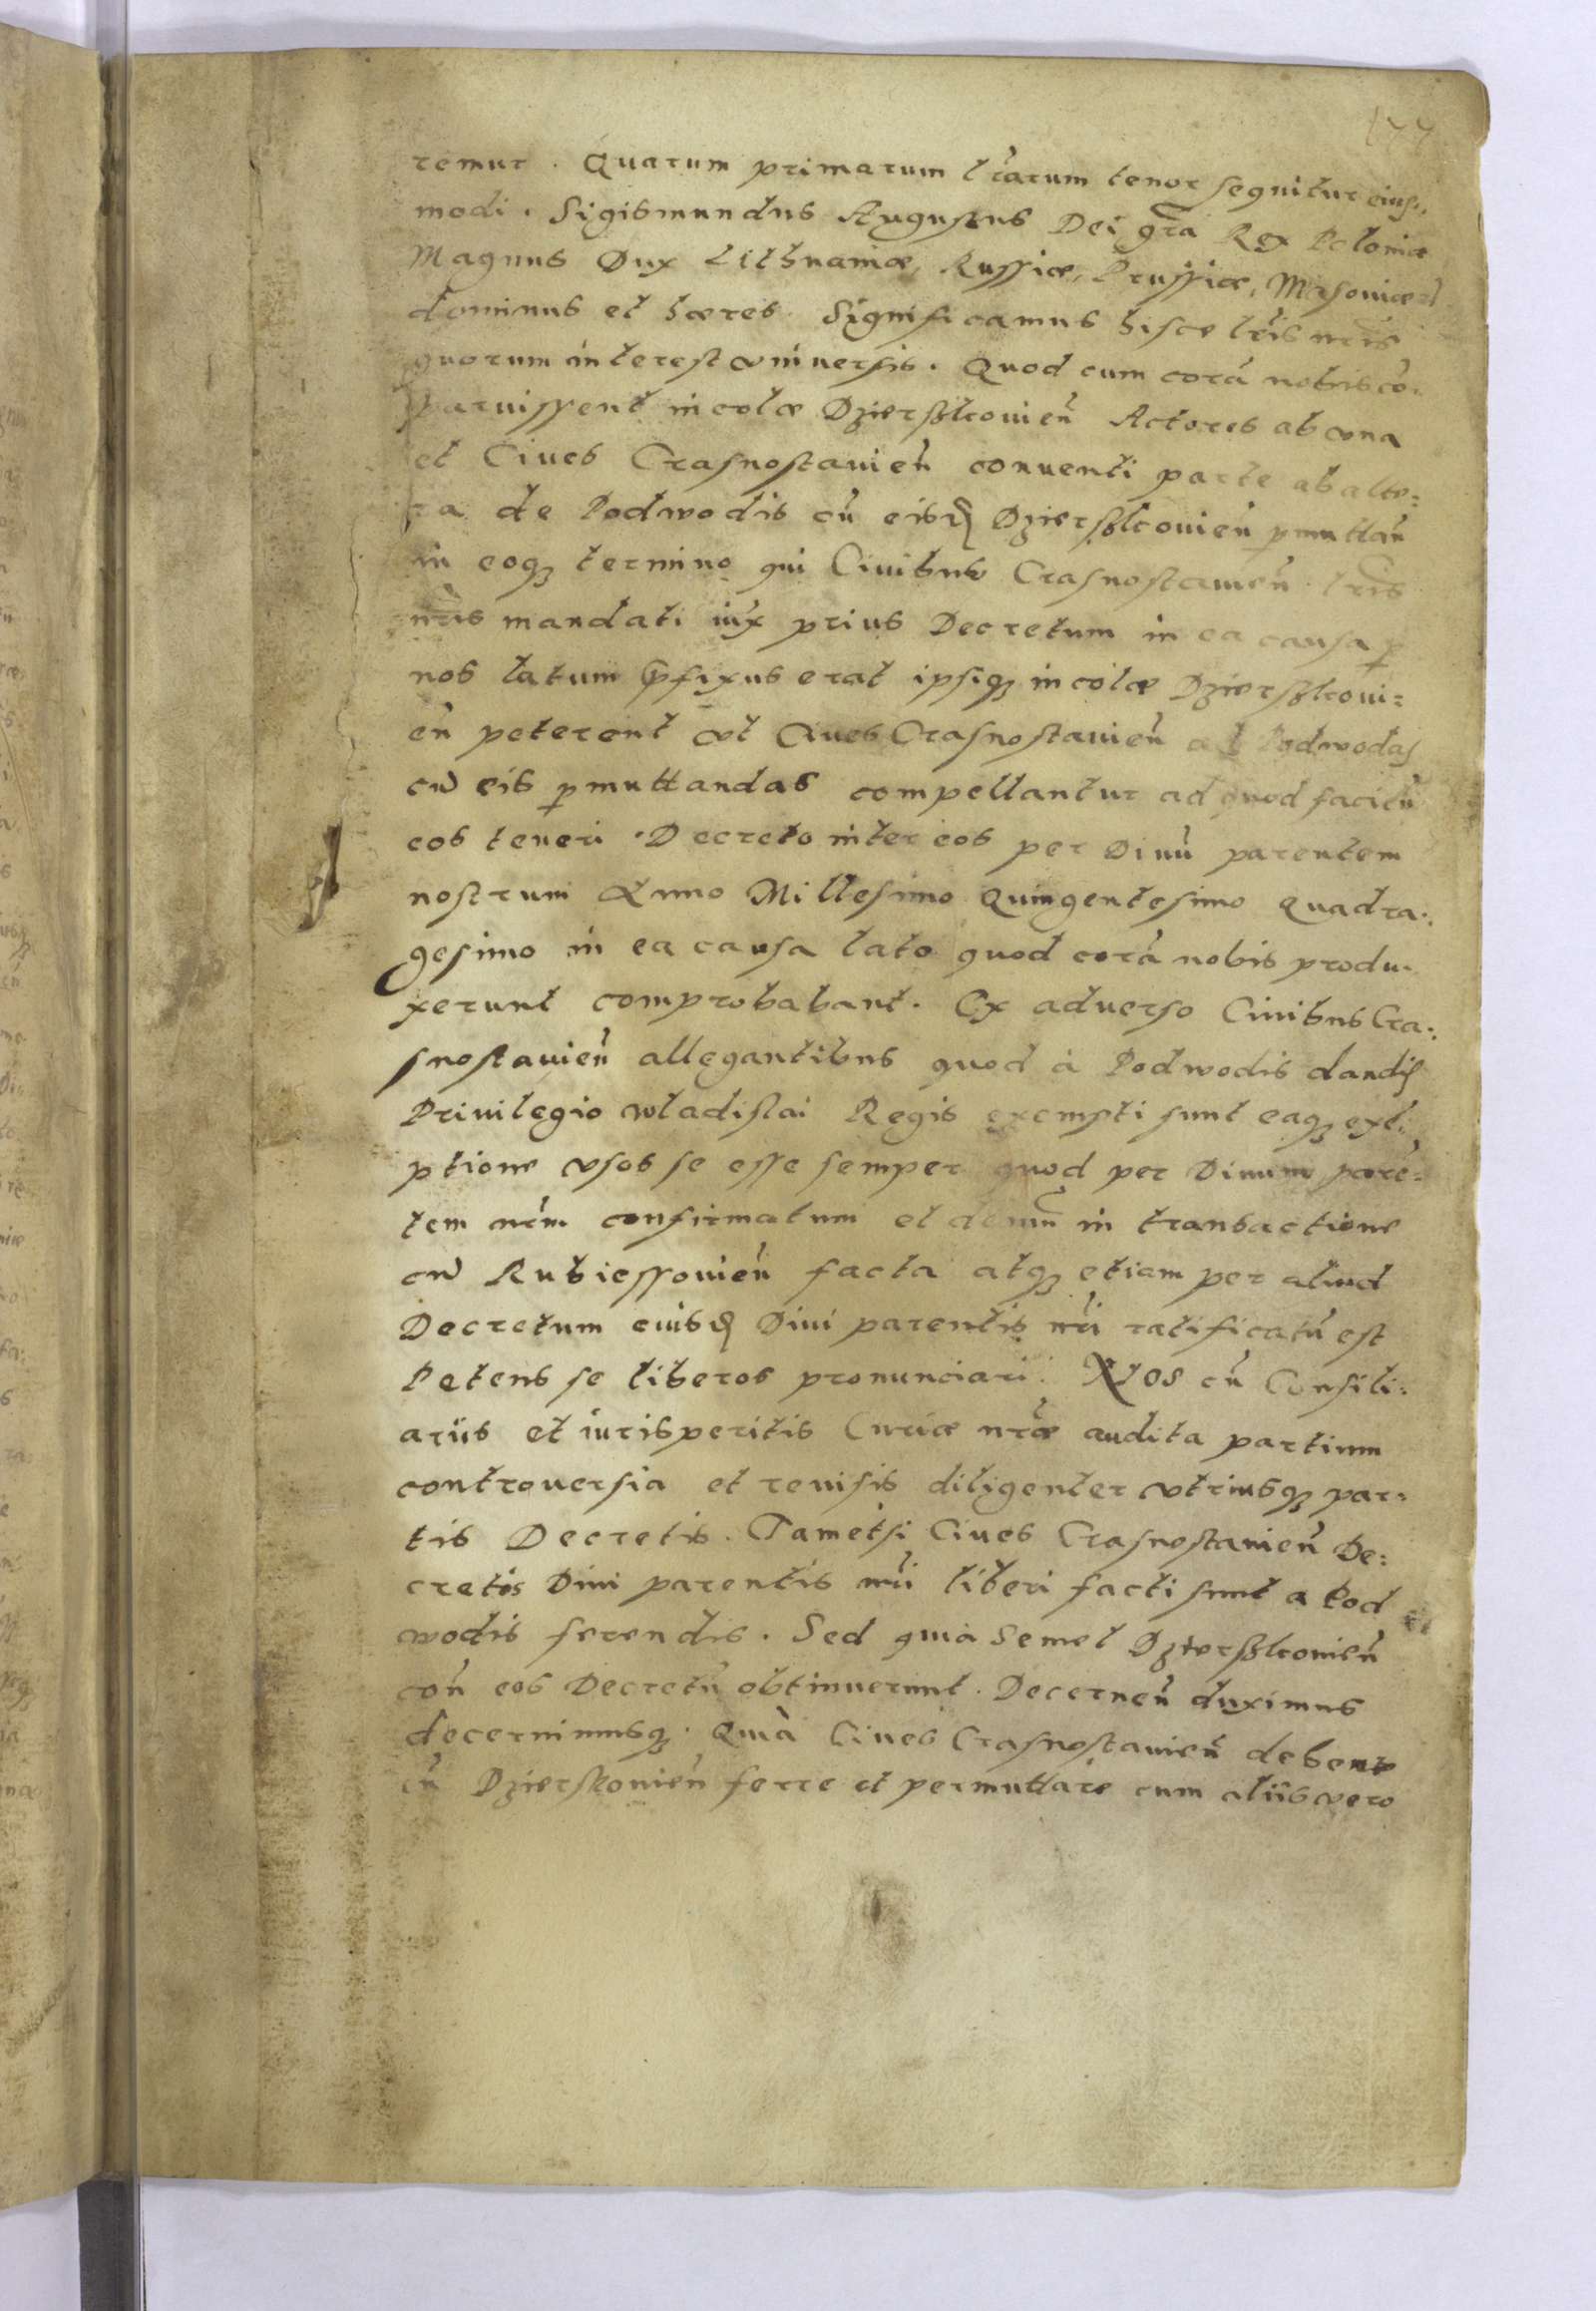 177
remur. Quarum primarum lrarum tenor sequitur eius,,
modi. Sigismundus Augustus Dei gra Rex Poloniæ
Magnus Dux Lithuaniæ, Russiæ, Prussiæ, Masouiæ
dominus et hæres. Significamus hisce lris nris
quorum interest vniuersis. Quod cum corā nobis cō.
paruissent incolæ Dzierszkouien̄ Actores ab vna
et Ciues Crasnostauien̄ conuenti parte ab alte:
ra de Podwodis cū eisd Dzierszkouien̄ pmuttan̄
in eoq3 termino qui Ciuibus Crasnostauien̄ lris
nris mandati iux prius Decretum in ea causa p
nos latum p̄fixus erat ipsiq3 incolæ Dzierszkoui:
en̄ peterent vt Ciues Crasnostauien̄ ad Podwodas
cū eis pmuttandas compellantur ad quod faciū
eos teneri. Decreto inter eos per Diuū parentem
nostrum Anno Millesimo Quingentesimo Quadra:
gesimo in ea causa lato quod corā nobis produ.
xerunt comprobabant. Ex aduerso Ciuibus Cra:
snostauien̄ allegantibus quod à Podwodis dandis
Priuilegio wladislai Regis exempti sunt eaq3 exē:
ptione vsos se esse semper quod per Diuum parē:
tem nrm confirmatum et demū in transactione
cū Rubiessouien̄ facta atq3 etiam per aliud
Decretum eiusd Diui parentis nri ratificatū est
Petens se liberos pronunciari. Nos cū Consili:
ariis et iurisperitis Curiæ nræ audita partium
controuersia et reuisis diligenter vtriusq3 par:
tis Decretis. Tametsi Ciues Crasnostauien̄ De:
cretis Diui parentis nri liberi facti sunt a Pod
wodis ferendis. Sed quia Semel Dzierszkouien̄
con̄ eos Decretū obtinuerunt. Decernen̄ duximus
decernimusq3. Quia Ciues Crasnostauien̄ debent
cū Dzierskouien̄ ferre et permuttare cum aliis vero